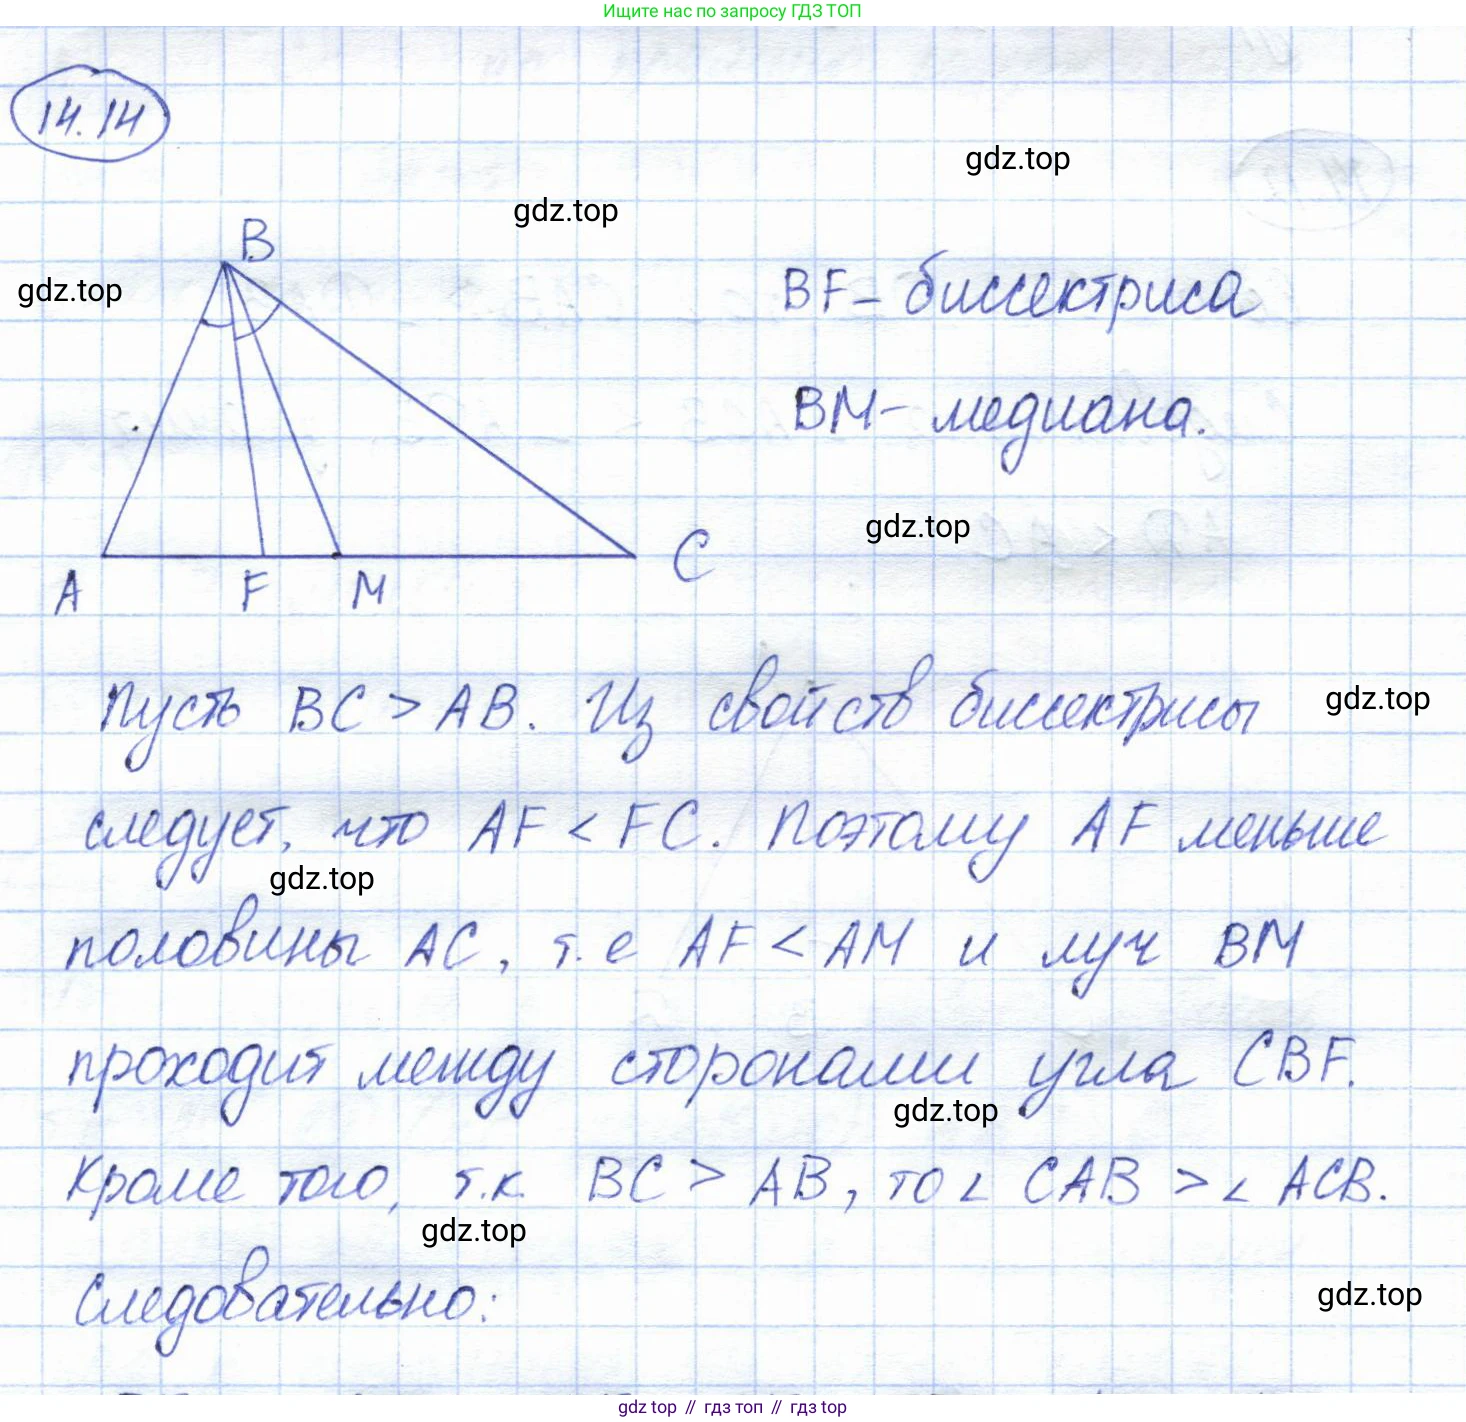 Ищите нас по запросу ГДЗ ТОП
14.14
gdz.top
gdz.top
B
gdz.top
BF – биссектриса
BM – медиана.
gdz.top
A F M C
Пусть BC > AB. Из свойств биссектрисы
gdz.top
следует, что AF < FC. Поэтому AF меньше
gdz.top
половины AC, т.е AF < AM и луч BM
проходит между сторонами угла CBF.
gdz.top
Кроме того, т.к. BC > AB, то ∠ CAB > ∠ ACB.
gdz.top
Следовательно:
gdz.top
gdz top // гдз топ // гдз top